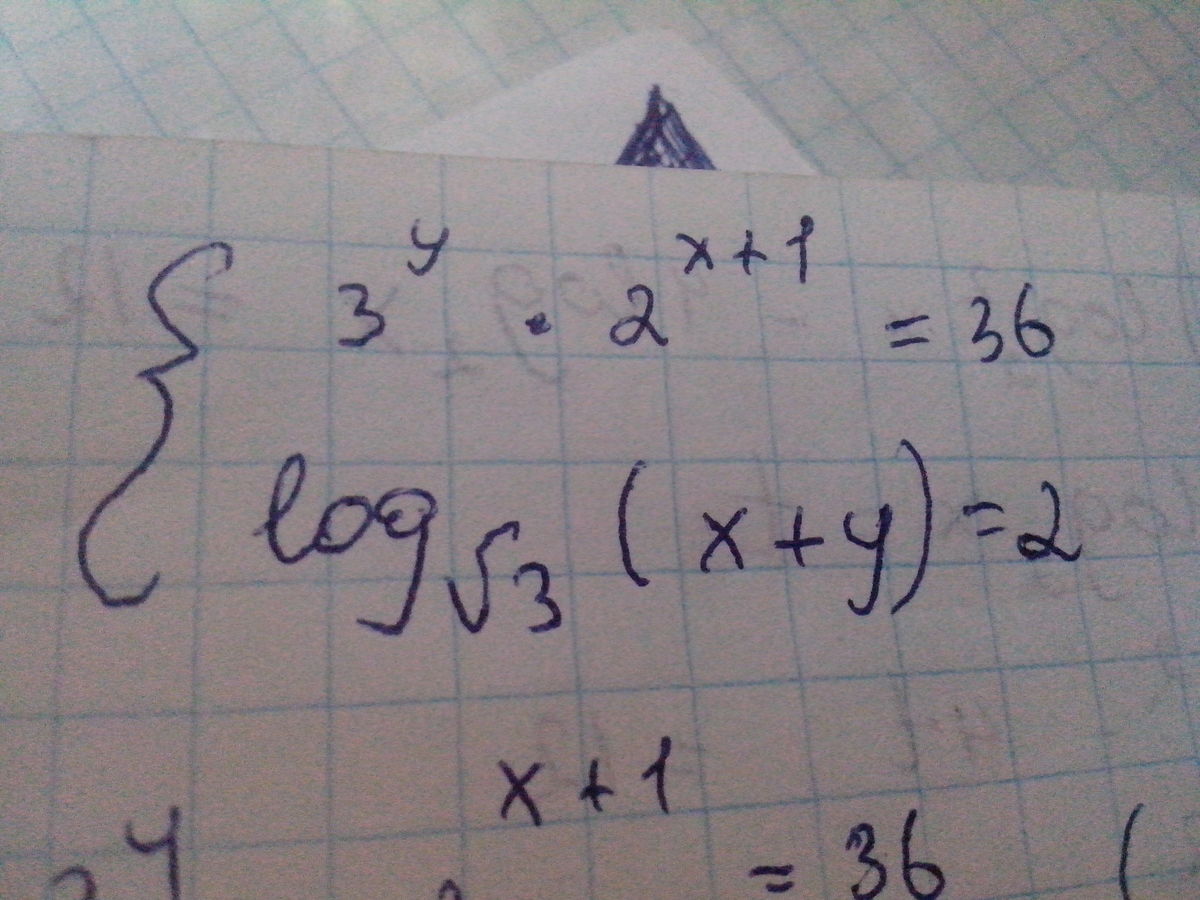 3^y · 2^{x+1} = 36
log_{√3} (x+y) = 2
y x+1 = 36 (